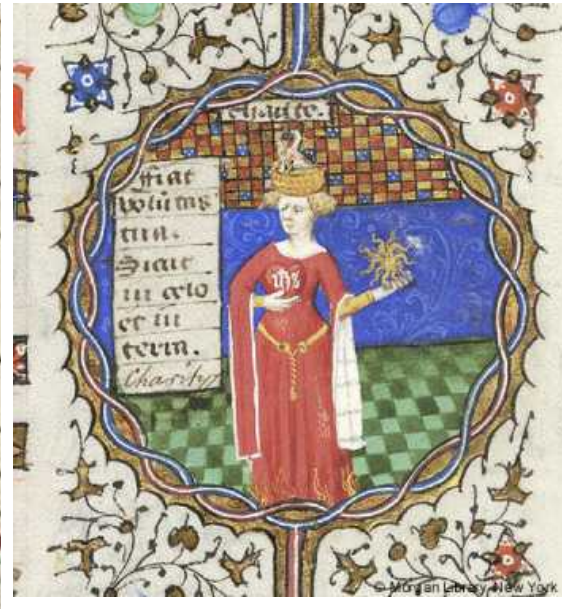 charite.
Fiat
volūtas
tua.
Sicut
in celo
et in
terra.
Charity
ihs
© Morgan Library, New York